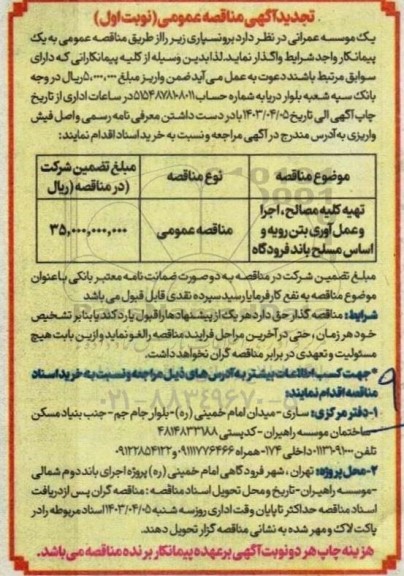 تجدید آگهی مناقصه عمومی (نوبت اول)
یک موسسه عمرانی در نظر دارد برونسپاری زیر را از طریق مناقصه عمومی به یک
پیمانکار واجد شرایط واگذار نماید. لذا بدین وسیله از کلیه پیمانکارانی که دارای
سوابق مرتبط باشند دعوت به عمل می آید ضمن واریز مبلغ ۵،۰۰۰،۰۰۰ ریال در وجه
بانک سپه شعبه بلوار دریا به شماره حساب ۵۱۵۴۸۷۸۱۰۸۰۱۱ در ساعات اداری از تاریخ
چاپ آگهی الی تاریخ ۱۴۰۳/۰۴/۰۵ با در دست داشتن معرفی نامه رسمی واصل فیش
واریزی به آدرس مندرج در آگهی مراجعه و نسبت به خرید اسناد اقدام نمایند:
موضوع مناقصه
نوع مناقصه
مبلغ تضمین شرکت
در مناقصه (ریال)
تهیه کلیه مصالح، اجرا
و عمل آوری بتن رویه و
اساس مسلح باند فرودگاه
مناقصه عمومی
۳۵,۰۰۰,۰۰۰,۰۰۰
مبلغ تضمین شرکت در مناقصه به دو صورت ضمانت نامه معتبر بانکی با عنوان
موضوع مناقصه به نفع کارفرما یا رسید سپرده نقدی قابل قبول می باشد
شرایط: مناقصه گذار حق دارد هر یک از پیشنهادها را قبول یا رد کند یا بنابر تشخیص
خود هر زمان، حتی در آخرین مراحل فرایند مناقصه را لغو نماید و از این بابت هیچ
مسئولیت و تعهدی در برابر مناقصه گران نخواهد داشت.
*جهت کسب اطلاعات بیشتر به آدرس های ذیل مراجعه و نسبت به خرید اسناد
مناقصه اقدام نمایند:
۱-دفتر مرکزی: ساری - میدان امام خمینی (ره) - بلوار جام جم - جنب بنیاد مسکن
-ساختمان موسسه راهیران - کدپستی ۴۸۱۴۸۳۳۱۸۸
تلفن ۰۱۱۳۱۰۹۱۰۰۰ داخلی ۱۷۴ - همراه ۰۹۱۱۱۷۷۶۴۶۶ و ۰۹۱۲۲۸۵۴۱۲۲
۲-محل پروژه: تهران، شهر فرودگاهی امام خمینی (ره) پروژه اجرای باند دوم شمالی
-موسسه راهیران - تاریخ و محل تحویل اسناد مناقصه: مناقصه گران پس از دریافت
اسناد مناقصه حداکثر تا پایان وقت اداری روز سه شنبه ۱۴۰۳/۰۴/۰۵ اسناد مربوطه را در
پاکت لاک و مهر شده به نشانی مناقصه گزار تحویل دهند.
هزینه چاپ هر دو نوبت آگهی بر عهده پیمانکار برنده مناقصه می باشد.
۰۲۱-۸۸۳۴۹۶۷۰
۹